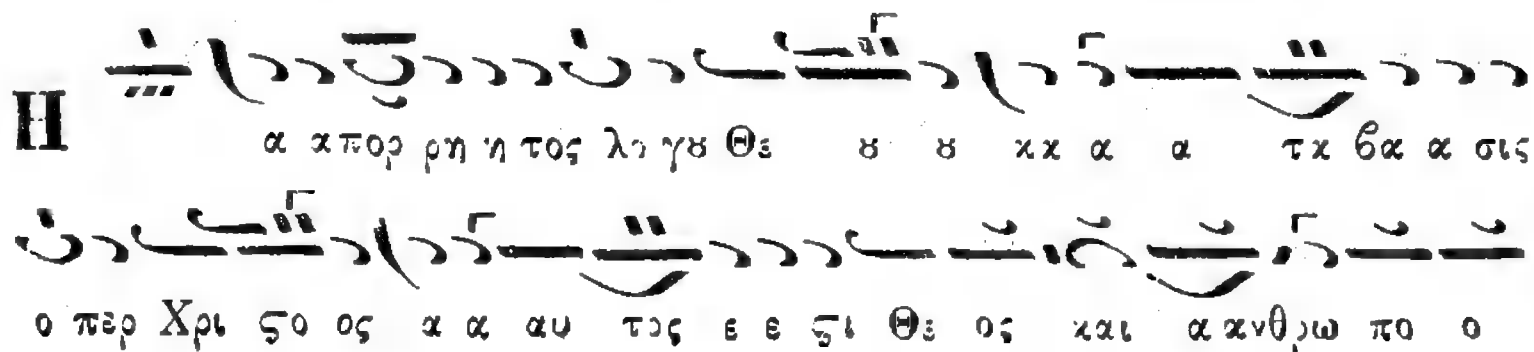 Η α απορ ρη η τος λο γȣ Θε ȣ ȣ κα α α τα βα α σις
ο περ Χρι ϛο ος α α αυ τος ε ε ϛι Θε ος και α ανθρω πο ο